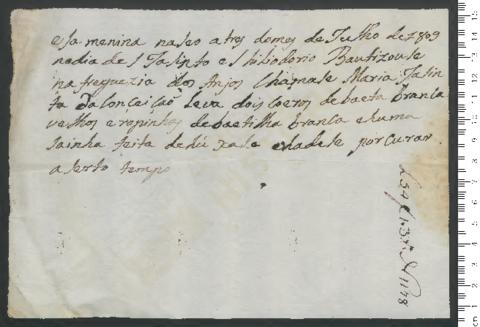 esa menina naseo a tres do mes de Julho de 1809
nodia de S Jasinto e S hiliodorio Bautizouse
na freguezia dos Anjos Chamase Maria Jasin
ta da Conceicaõ Leva dois coeros de baeta branca
velhos e ropinha debaetilha branca ehuma
sainha feita de hũ xale enadese por curar
a serto tempo
L 54 f 135 N 1148